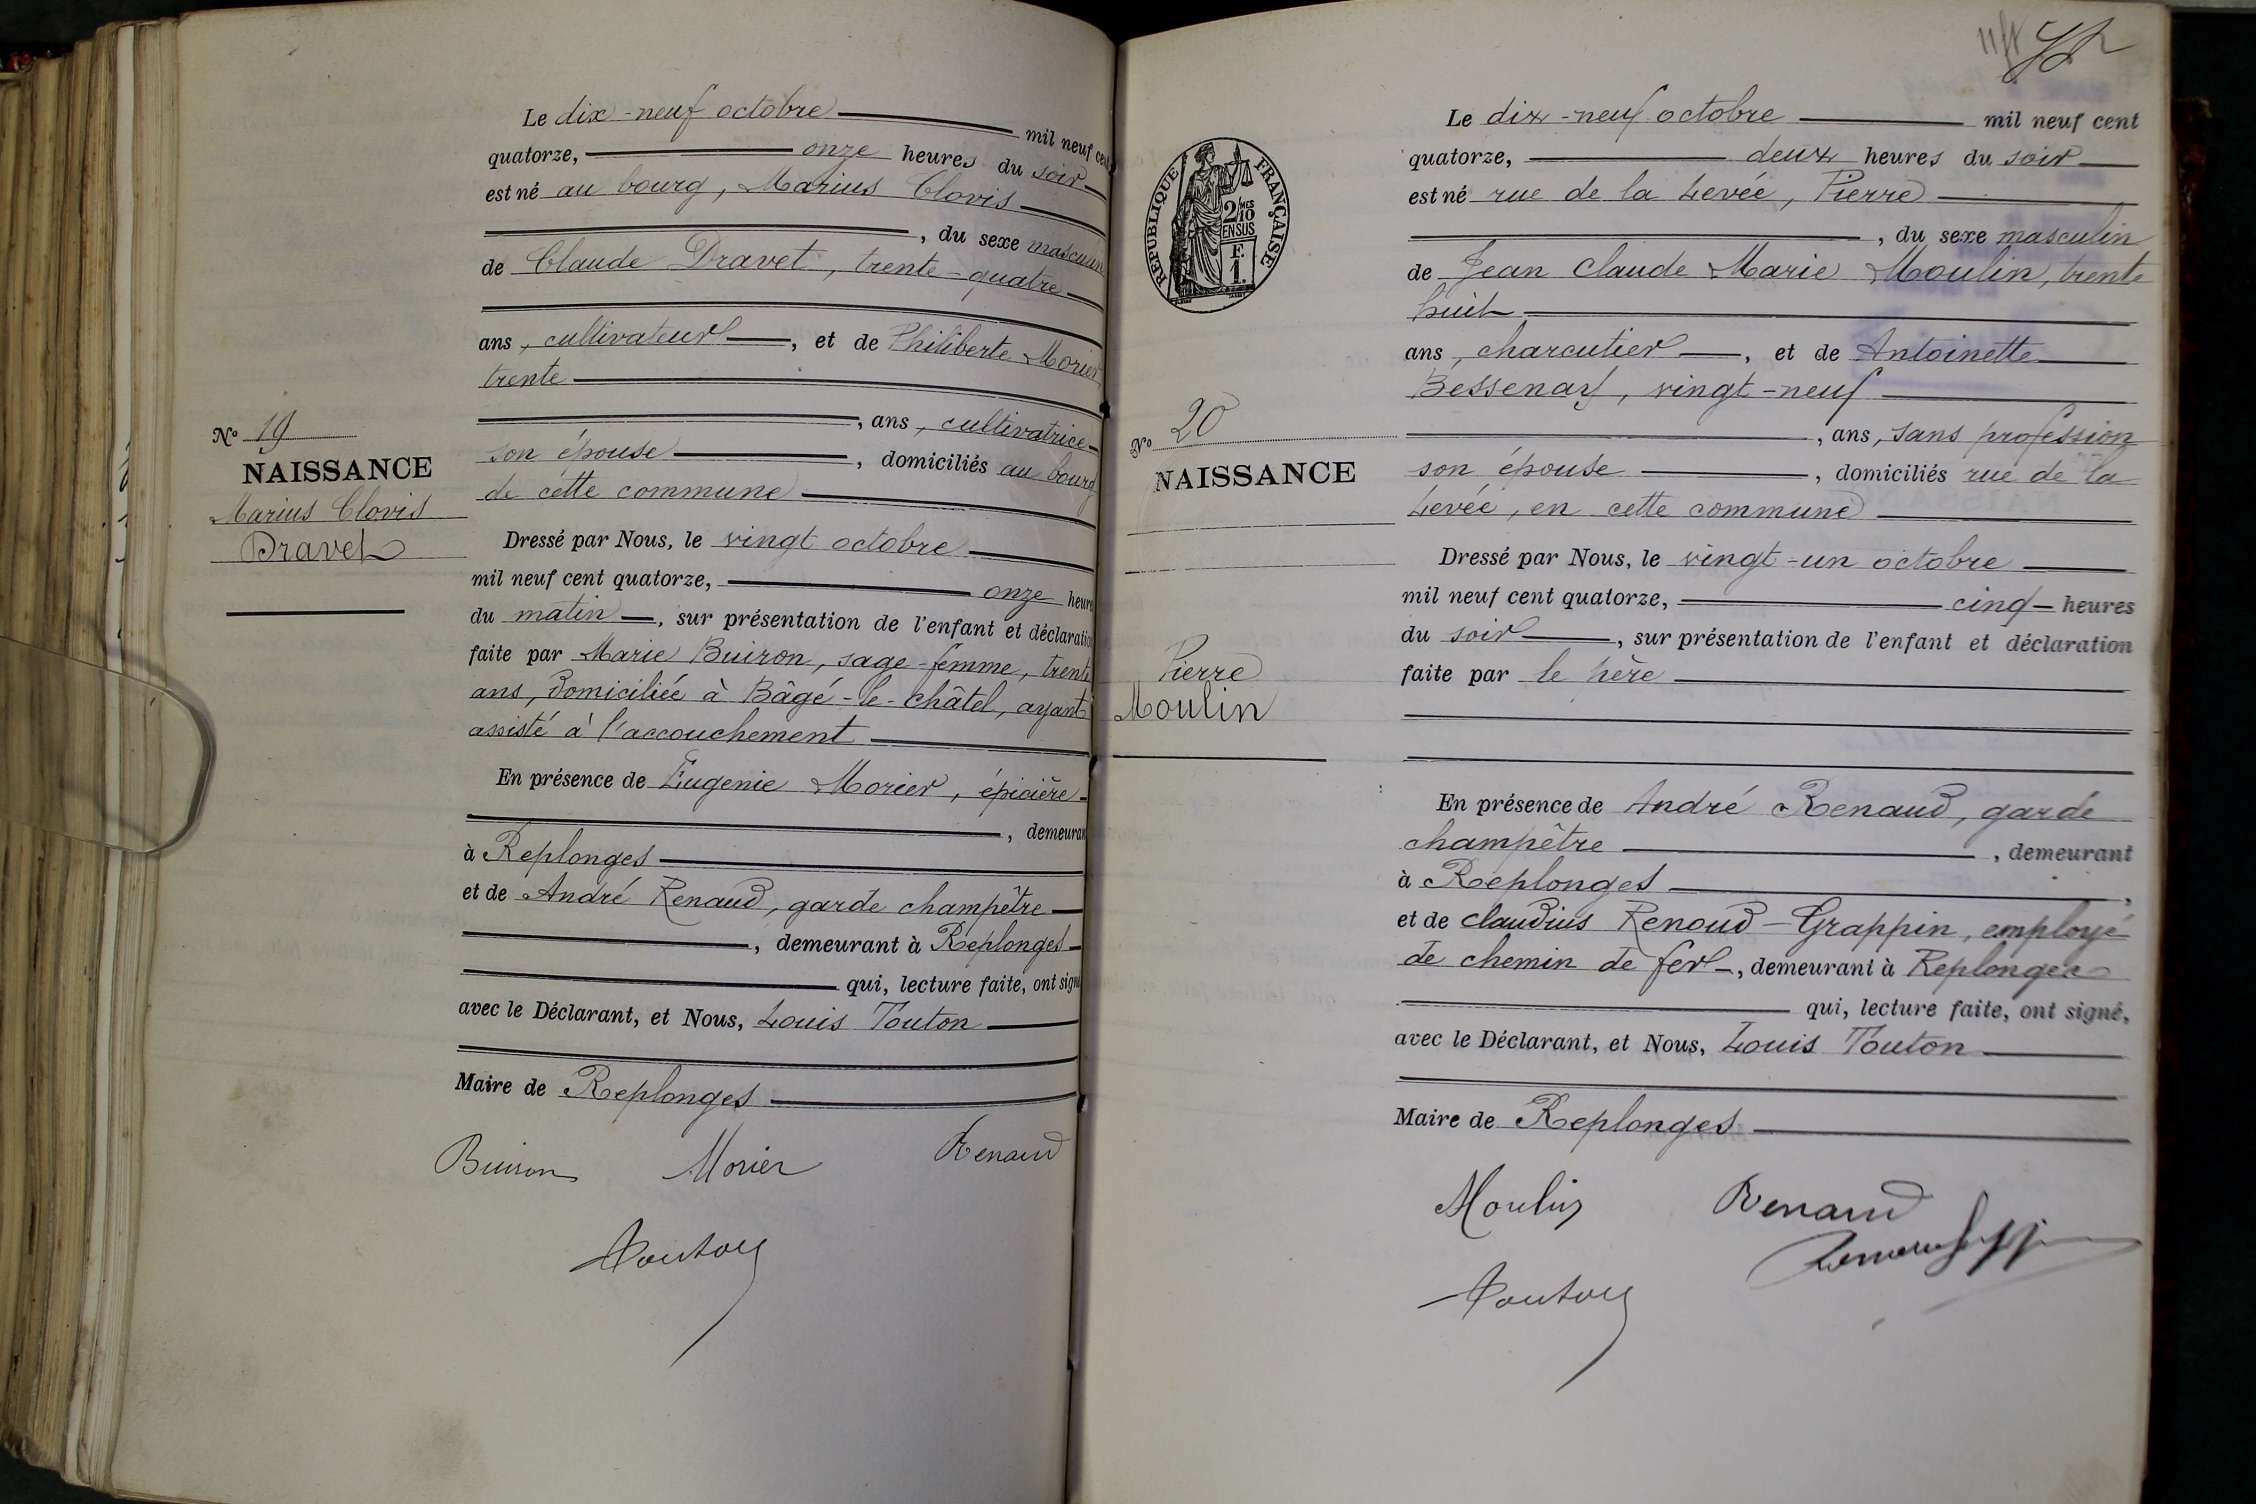 Le dix-neuf octobre mil neuf cent
quatorze, onze heures du soir
est né au bourg, Marius Clovis
, du sexe masculin
de Claude Dravet, trente-quatre
ans, cultivateur, et de Philiberte Morier
trente
, ans, cultivatrice
son épouse, domiciliés au bourg
de cette commune
Nº 19
NAISSANCE
Marius Clovis
Dravet
Dressé par Nous, le vingt octobre
mil neuf cent quatorze, onze heures
du matin, sur présentation de l'enfant et déclaration
faite par Marie Buiron, sage-femme, trente
ans, domiciliée à Bâgé-le-châtel, ayant
assisté à l'accouchement
En présence de Eugenie Morier, épicière
, demeurant
à Replonges
et de André Renaud, garde champêtre
, demeurant à Replonges
qui, lecture faite, ont signé
avec le Déclarant, et Nous, Louis Touton
Maire de Replonges
Buiron Morier Renaud
Touton
RÉPUBLIQUE FRANÇAISE
2/10 MES
EN SUS
F.
1.
Le dix-neuf octobre mil neuf cent
quatorze, deux heures du soir
est né rue de la Levée, Pierre
, du sexe masculin
de Jean Claude Marie Moulin, trente
huit
ans, charcutier, et de Antoinette
Bessenay, vingt-neuf
, ans, sans profession
son épouse, domiciliés rue de la
Levée, en cette commune
Nº 20
NAISSANCE
Pierre
Moulin
Dressé par Nous, le vingt-un octobre
mil neuf cent quatorze, cinq heures
du soir, sur présentation de l'enfant et déclaration
faite par le père
En présence de André Renaud, garde
champêtre, demeurant
à Replonges,
et de Claudius Renoud-Grappin, employé
de chemin de fer, demeurant à Replonges
qui, lecture faite, ont signé,
avec le Déclarant, et Nous, Louis Touton
Maire de Replonges
Moulin Renaud
Touton